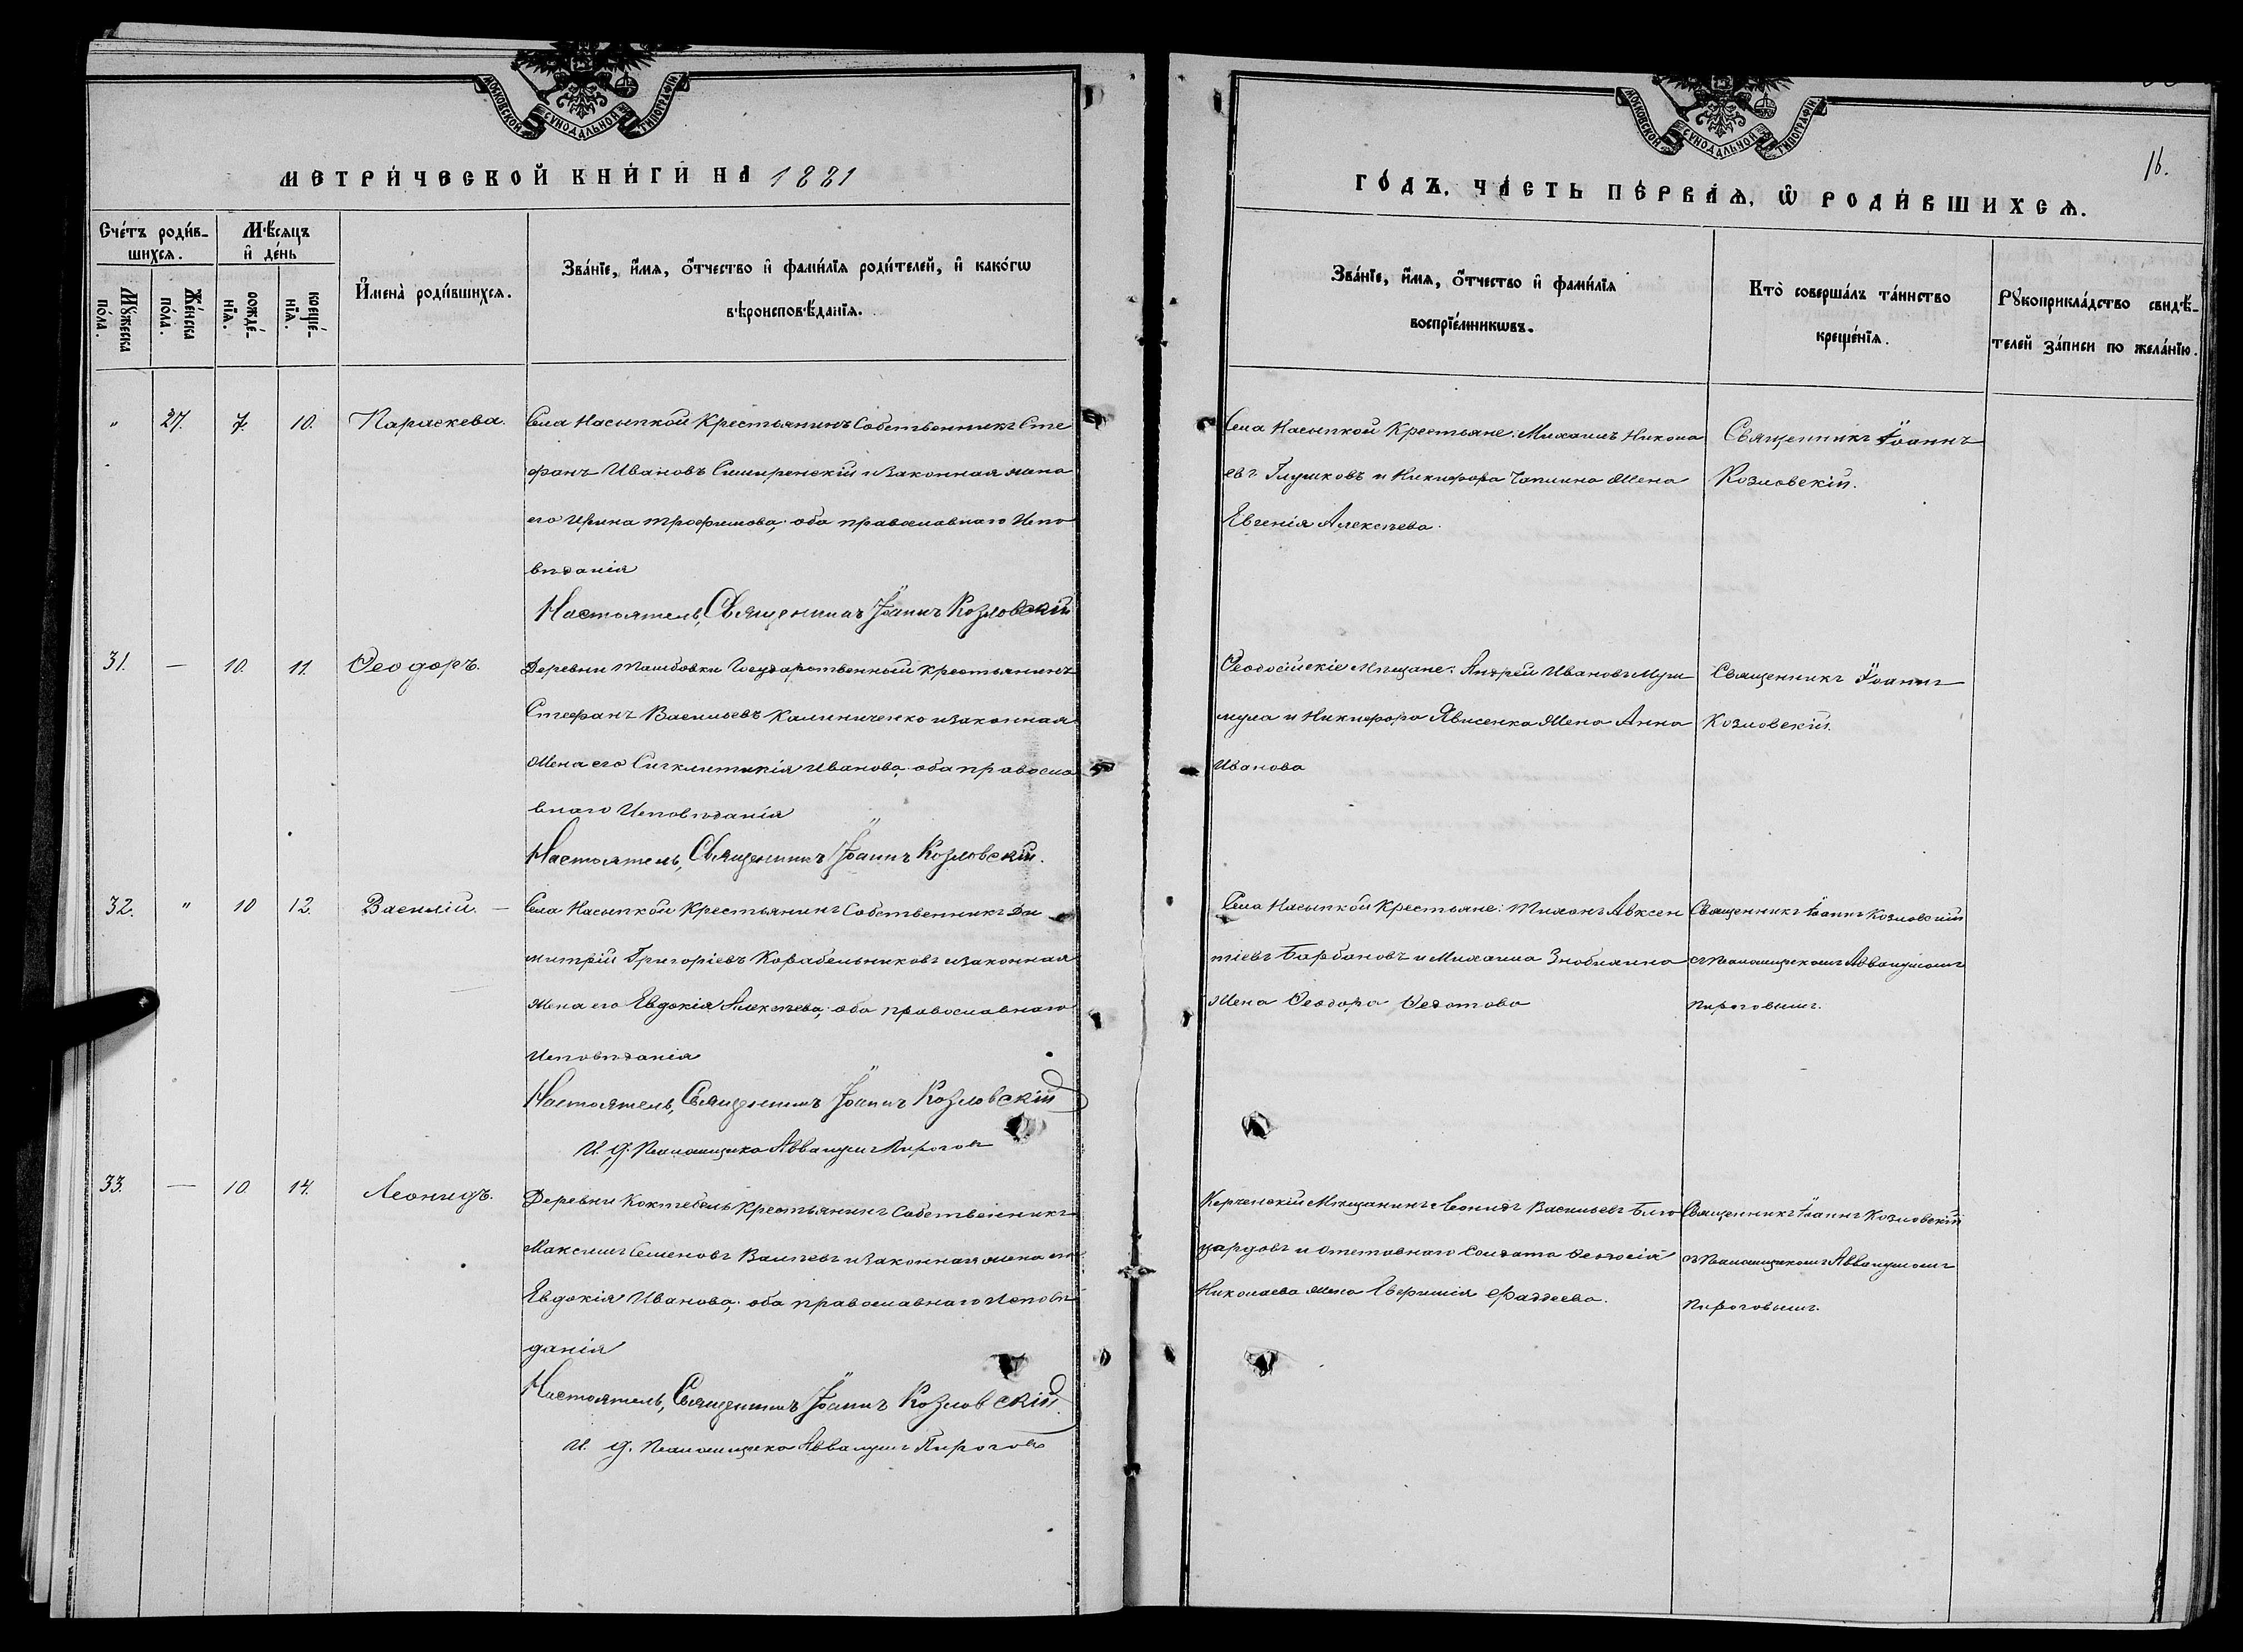 МОСКОВСКОЙ СѴНОДАЛЬНОЙ ТИПОГРАФІИ
МЕТРИ́ЧЕСКОЙ КНИ́ГИ НА 1881
Сче́тъ роди́в-
шихся.
Мѣ́сяцъ
и҆ де́нь
Мꙋ́жеска
по́ла.
Же́нска
по́ла.
рожде́-
нїѧ.
креще́-
нїѧ.
И҆мена̀ роди́вшихсѧ.
Зва́нїе, и҆́мѧ, ѻ҆́тчество и҆ фами́лїѧ роди́телей, и҆ како́гѡ
вѣроисповѣ́данїѧ.
" 27. 7. 10. Параскева.
Села Насыпкой Крестьянинъ Собственникъ Сте
фанъ Ивановъ Смиренскій и Законная жена
его Ирина Трофимова, оба православнаго Испо
вѣданія
Настоятель, Священникъ Іоаннъ Козловскій
31. — 10. 11. Ѳеодоръ.
Деревни Тамбовки Государственный крестьянинъ
Стефанъ Васильевъ Калиниченко и законная
жена его Сигклитикія Иванова, оба правосла
внаго Исповѣданія
Настоятель, Священникъ Іоаннъ Козловскій.
32. " 10 12. Василій. —
Села Насыпкой Крестьянинъ Собственникъ Ди
митрій Григоріевъ Корабельниковъ и законная
жена его Евдокія Алексѣева, оба православнаго
Исповѣданія
Настоятель, Священникъ Іоаннъ Козловскій
И. д. Псаломщика Аввакумъ Пироговъ
33. — 10. 14. Леонидъ.
Деревни Коктебель Крестьянинъ Собственникъ
Максимъ Семеновъ и законная жена его
Евдокія Иванова, оба православнаго Исповѣ
данія
Настоятель, Священникъ Іоаннъ Козловскій
И. д. Псаломщика Аввакумъ Пироговъ
МОСКОВСКОЙ СѴНОДАЛЬНОЙ ТИПОГРАФІИ
16.
ГО́ДЪ, ЧА́СТЬ ПЕ́РВАѦ, Ѡ҆ РОДИ́ВШИХСѦ.
Зва́нїе, и҆́мѧ, ѻ҆́тчество и҆ фами́лїѧ
воспрїе́мникѡвъ.
Кто̀ соверша́лъ та́инство
креще́нїѧ.
Рꙋкоприкла́дство свидѣ́-
телей за́писи по жела́нїю.
Села Насыпкой Крестьяне: Михаилъ Никола
евъ Глушковъ и Никифора Чаплина жена
Евгенія Алексѣева.
Священникъ Іоаннъ
Козловскій.
Ѳеодосійскіе Мѣщане: Андрей Ивановъ
и Никифора жена Анна
Иванова
Священникъ Іоаннъ
Козловскій.
Села Насыпкой Крестьяне: Тихонъ Авксен
тіевъ Барбановъ и Михаила Знобилина
жена Ѳеодора Ѳедотова
Священникъ Іоаннъ Козловскій
съ Псаломщикомъ Аввакумомъ
Пироговымъ.
Керченскій Мѣщанинъ Леонидъ Васильевъ
и отставнаго Солдата Ѳеодосія
Николаева жена Фаддеева.
Священникъ Іоаннъ Козловскій
съ Псаломщикомъ Аввакумомъ
Пироговымъ.